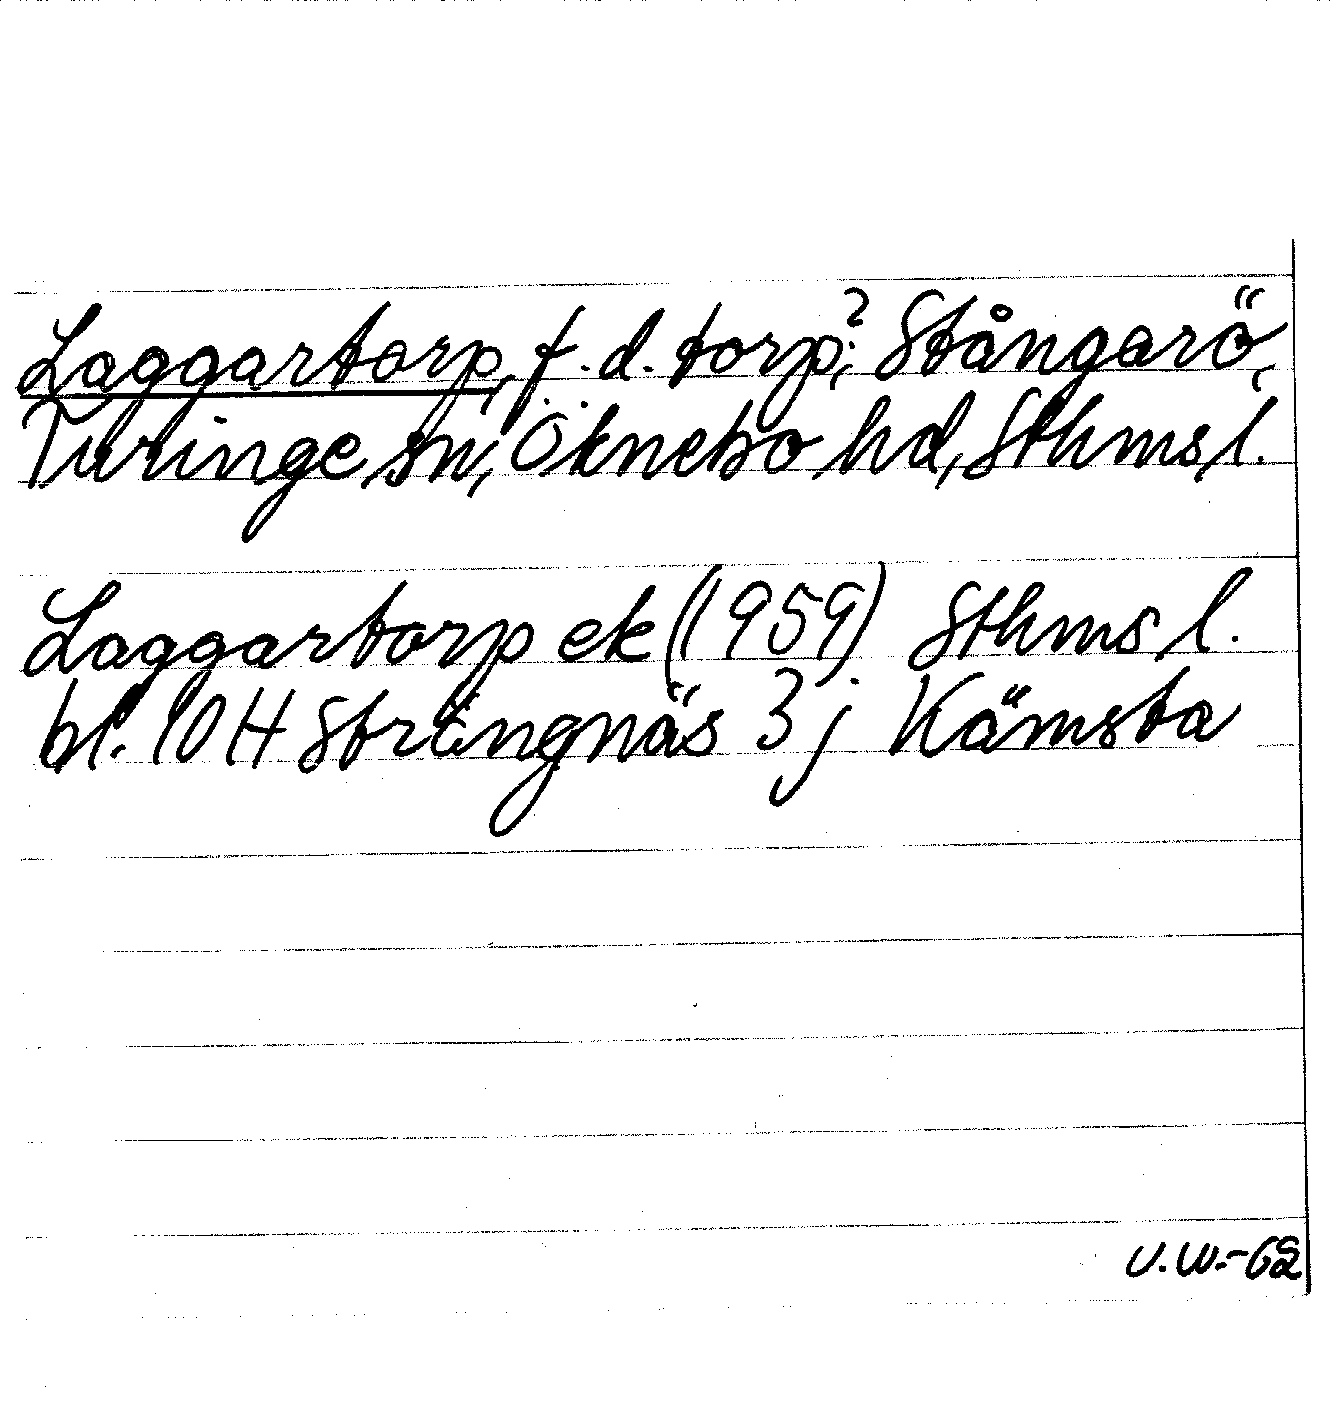 Laggartorp, f.d. torp;? Stångarö,
Turinge sn, Öknebo hd, Sthms l.
Laggartorp ek (1959) Sthms l.
bl. 10 H Strängnäs 3 j Kämsta
U.W.-62